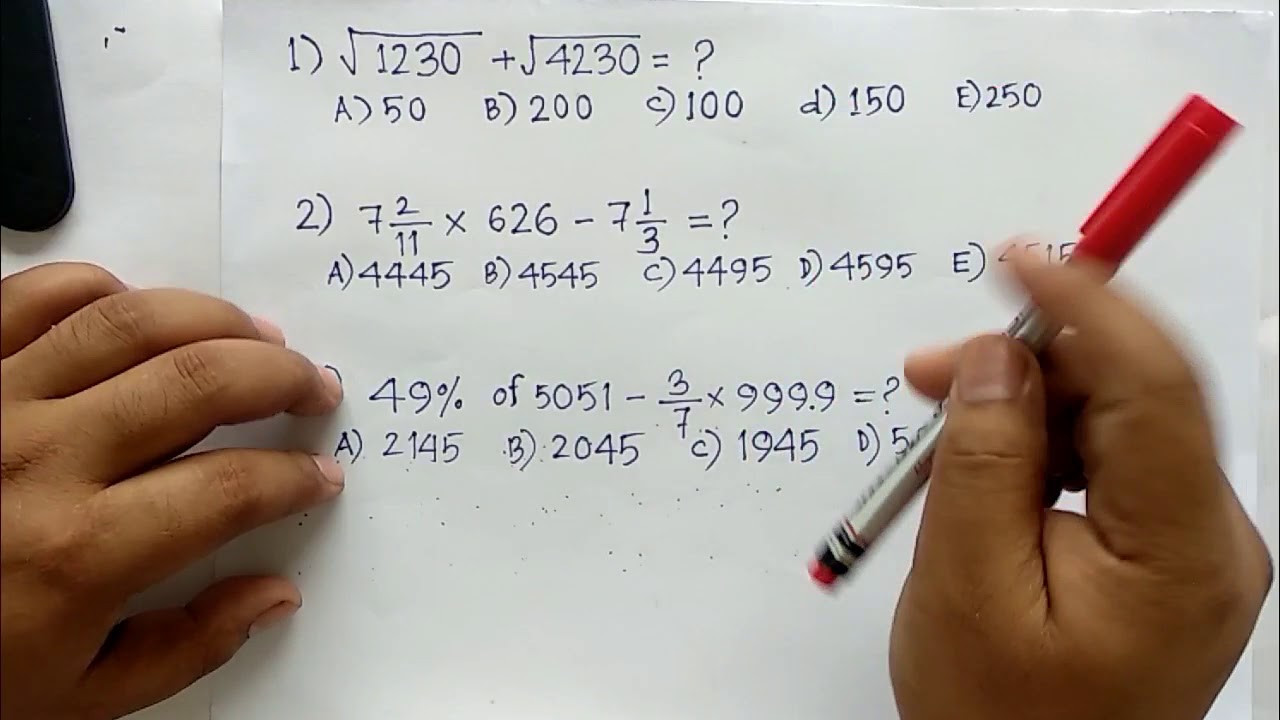 1) √1230 + √4230 = ?
A) 50 B) 200 C) 100 d) 150 E) 250
2) 7 2/11 × 626 − 7 1/3 = ?
A) 4445 B) 4545 C) 4495 D) 4595 E)
49% of 5051 − 3/7 × 999.9 = ?
A) 2145 B) 2045 C) 1945 D)